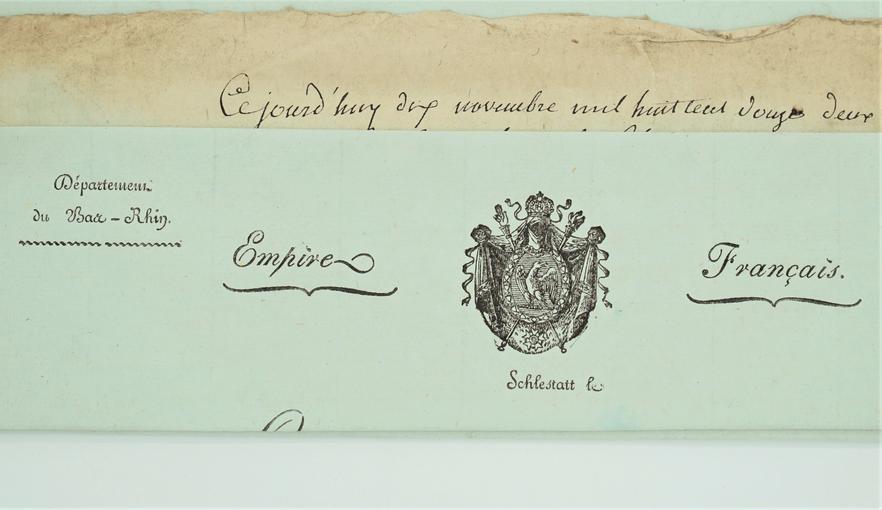 Ce jourd'huy dix novembre mil huit cent douze deux
Département
du Bas-Rhin.
Empire
Français.
Schlestatt le